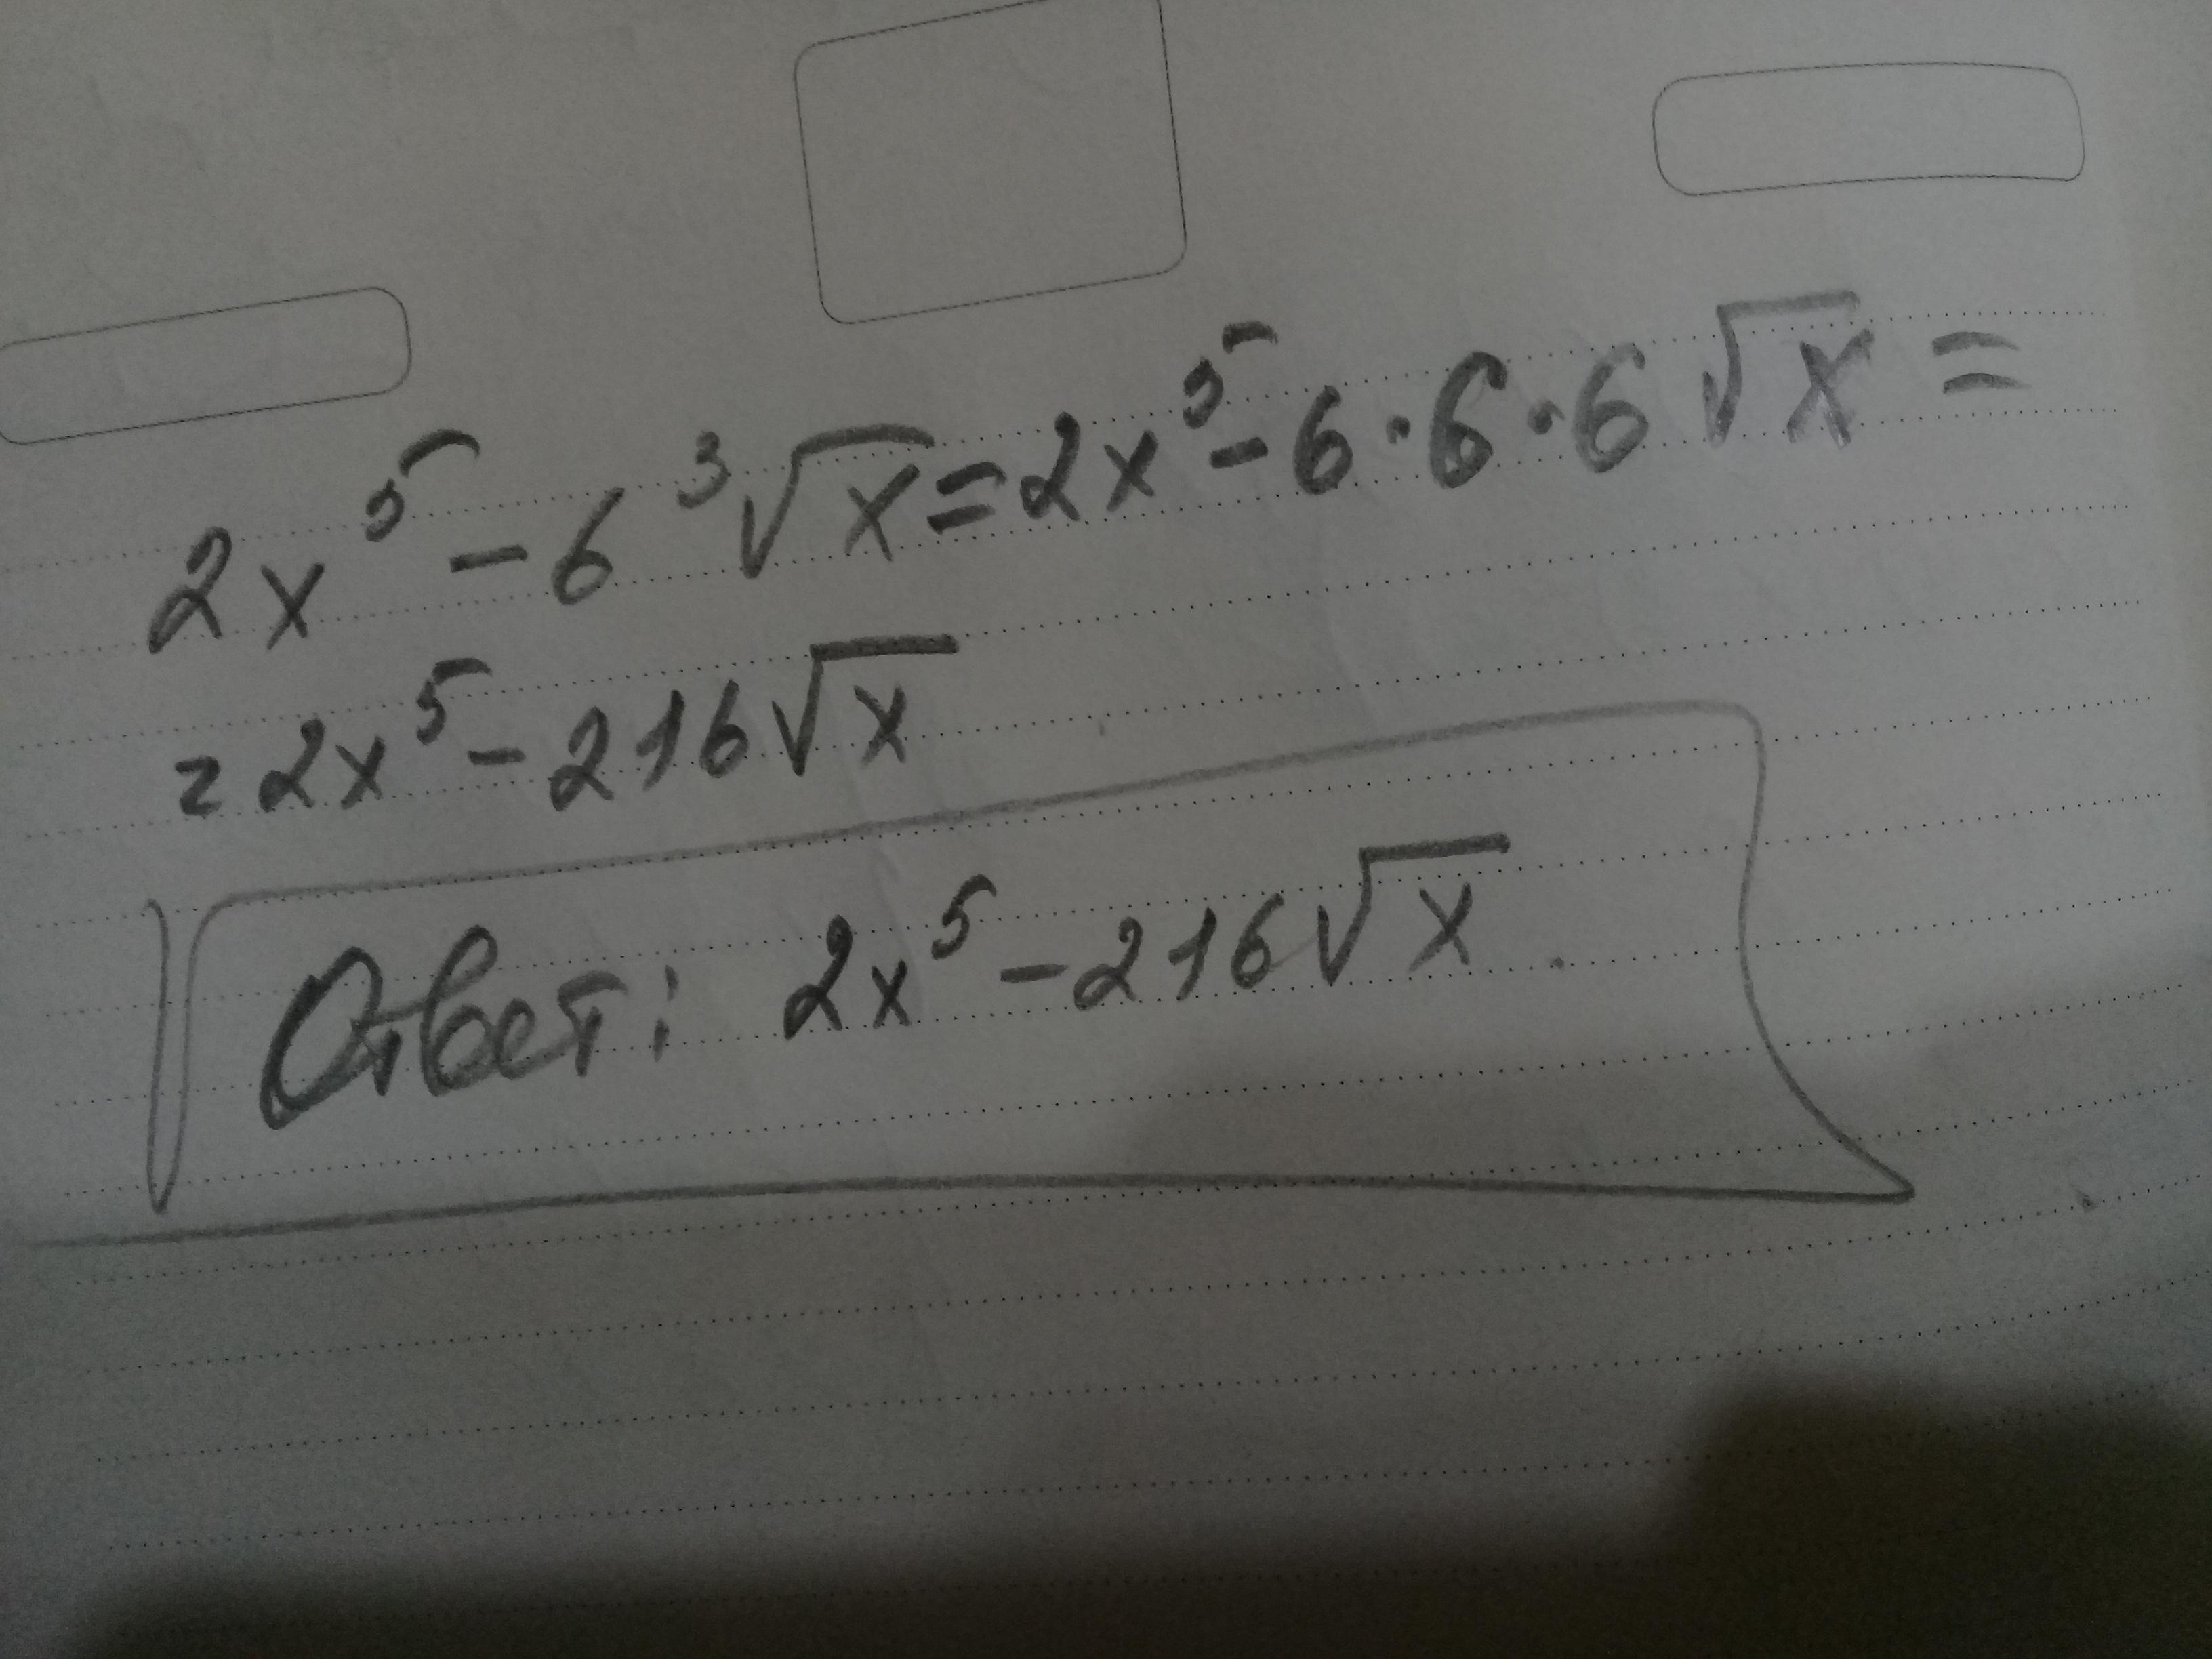 2x⁵ - 6 ³√x = 2x⁵ - 6 · 6 · 6 √x =
= 2x⁵ - 216√x
Ответ: 2x⁵ - 216√x.